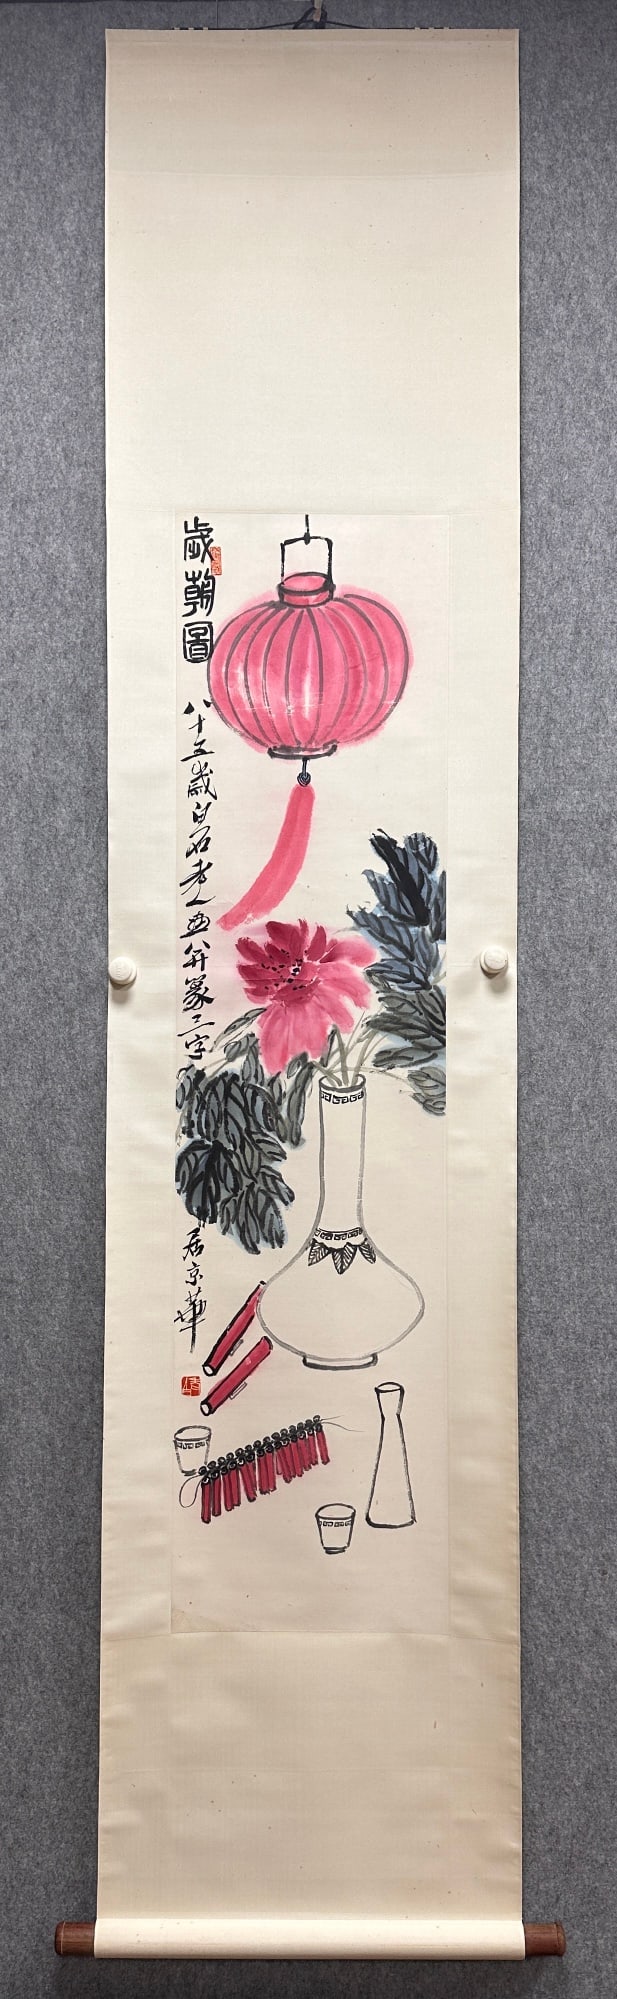 歲朝圖
八十五歲白石老人畫并篆三字
居京華